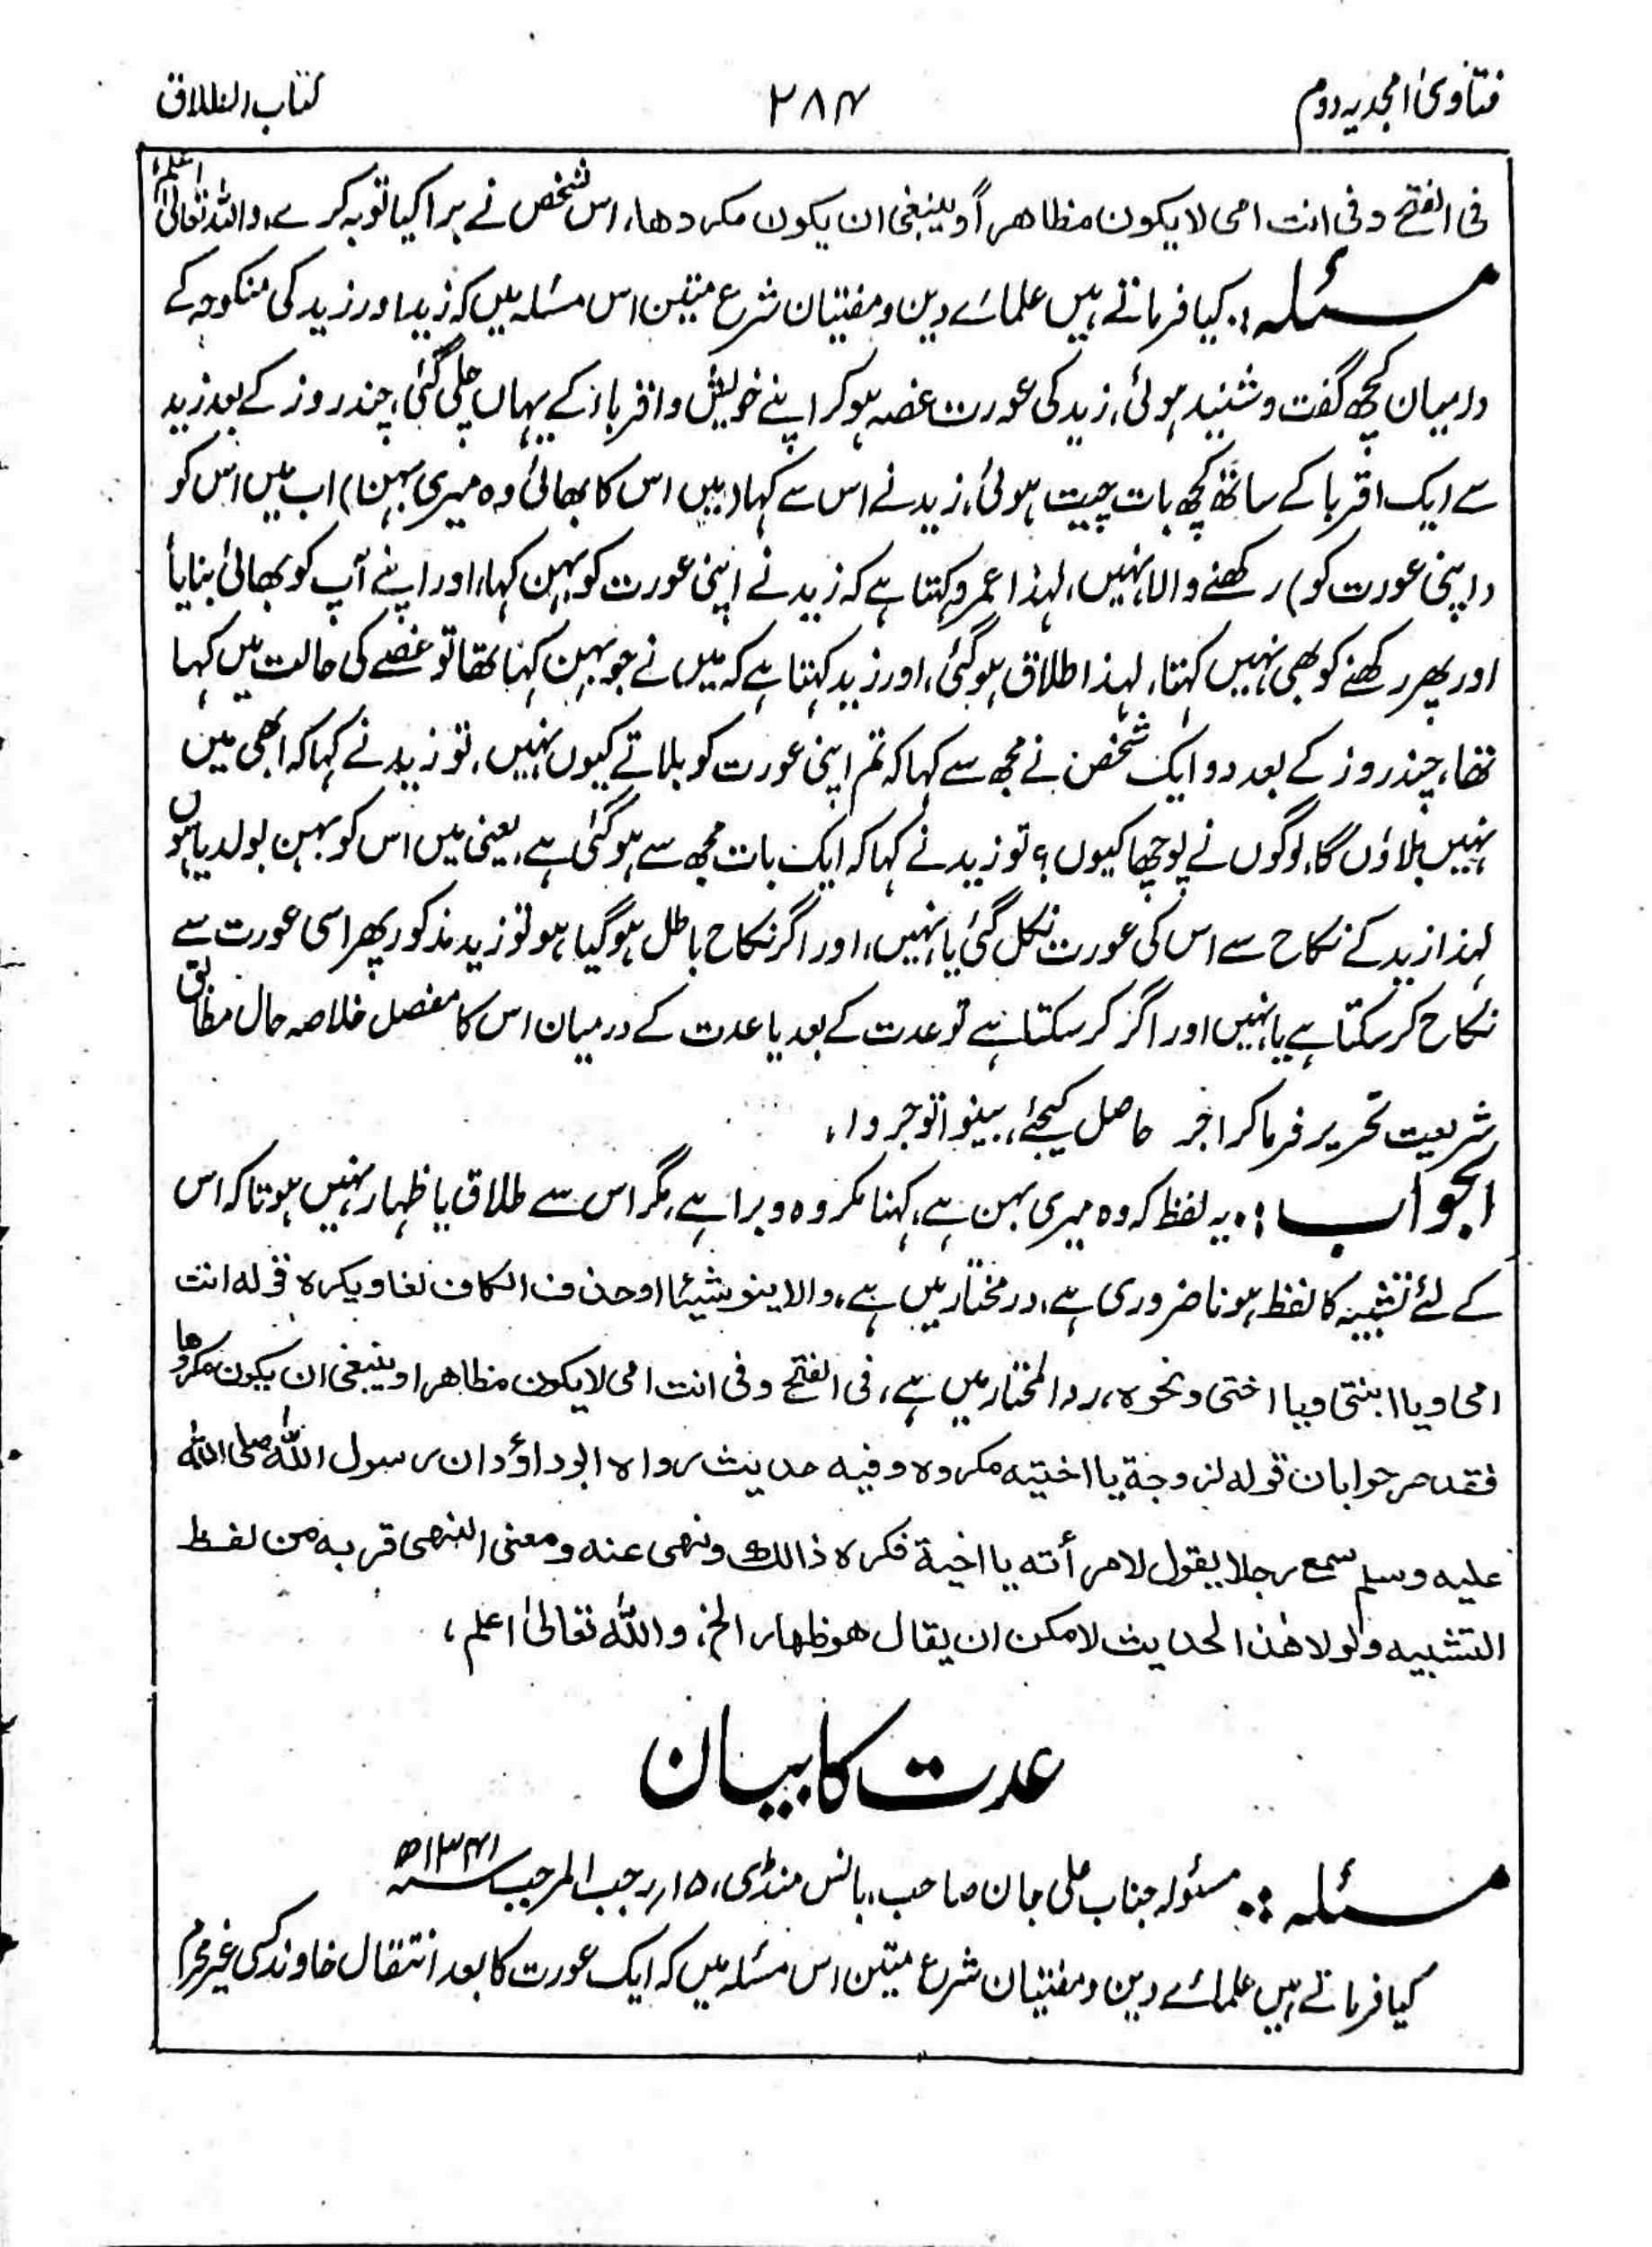 فتاویٰ امجدیہ دوم ۲۸۴ کتاب الطلاق
فی الفتح وفی انت امی لا یکون مظاهراً و ینبغی ان یکون مکروها، اس شخص نے برا کیا توبہ کرے، واللہ تعالیٰ اعلم
مسئلہ :. کیا فرماتے ہیں علمائے دین و مفتیان شرع متین اس مسئلہ میں کہ زید اور زید کی منکوحہ کے
درمیان کچھ گفت و شنید ہوئی، زید کی عورت غصہ ہو کر اپنے خویش و اقرباء کے یہاں چلی گئی، چند روز کے بعد زید
سے ایک اقربا کے ساتھ کچھ بات چیت ہوئی، زید نے اس سے کہا (میں اس کا بھائی وہ میری بہن) اب میں اس کو
(اپنی عورت کو) رکھنے والا نہیں، لہذا عمرو کہتا ہے کہ زید نے اپنی عورت کو بہن کہا، اور اپنے آپ کو بھائی بنایا
اور پھر رکھنے کو بھی نہیں کہتا، لہذا طلاق ہو گئی، اور زید کہتا ہے کہ میں نے جو بہن کہا تھا تو غصے کی حالت میں کہا
تھا، چند روز کے بعد دو ایک شخص نے مجھ سے کہا کہ تم اپنی عورت کو بلاتے کیوں نہیں، تو زید نے کہا کہ ابھی میں
نہیں بلاؤں گا، لوگوں نے پوچھا کیوں؟ تو زید نے کہا کہ ایک بات مجھ سے ہو گئی ہے، یعنی میں اس کو بہن بولدیا ہوں
لہذا زید کے نکاح سے اس کی عورت نکل گئی یا نہیں، اور اگر نکاح باطل ہو گیا ہو تو زید مذکور پھر اسی عورت سے
نکاح کر سکتا ہے یا نہیں اور اگر کر سکتا ہے تو عدت کے بعد یا عدت کے درمیان اس کا مفصل خلاصہ حال مطابق
شریعت تحریر فرما کر اجر حاصل کیجئے، بینوا توجروا،
الجواب :. یہ لفظ کہ وہ میری بہن ہے، کہنا مکروہ و برا ہے، مگر اس سے طلاق یا ظہار نہیں ہوتا کہ اس
کے لئے تشبیہ کا لفظ ہونا ضروری ہے، در مختار میں ہے، والا ینو شیئا او حذف الکاف لغا ویکره قوله انت
امی ویا ابنتی ویا اختی ونحوه، رد المختار میں ہے، فی الفتح وفی انت امی لا یکون مظاهرا و ینبغی ان یکون مکروها
فقد صرحوا بان قوله لزوجة یا اخیته مکروه وفیه حدیث رواه ابو داؤد ان رسول اللّٰه صلی اللّٰه
علیه وسلم سمع رجلا یقول لامرأته یا اخیة فکره ذالک ونهی عنه ومعنی النهی قربه من لفظ
التشبیه ولولا هذا الحدیث لامکن ان یقال هو ظهار الخ، واللّٰه تعالیٰ اعلم،
عدت کا بیان
مسئلہ :. مسئولہ جناب علی جان صاحب، بانس منڈی، ۱۵ر رجب المرجب سنہ ۱۳۴۱ھ
کیا فرماتے ہیں علمائے دین و مفتیان شرع متین اس مسئلہ میں کہ ایک عورت کا بعد انتقال خاوند کسی غیر محرم